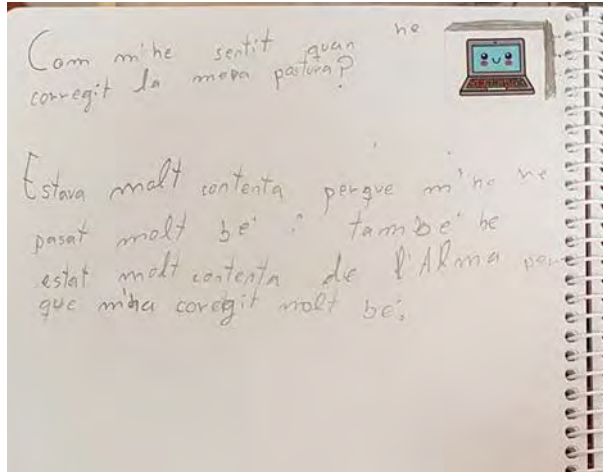 Com m'he sentit quan he
corregit la meva postura?
Estava molt contenta perque m'ho he
pasat molt bé i també he
estat molt contenta de l'Alma per
que m'ha coregit molt bé.